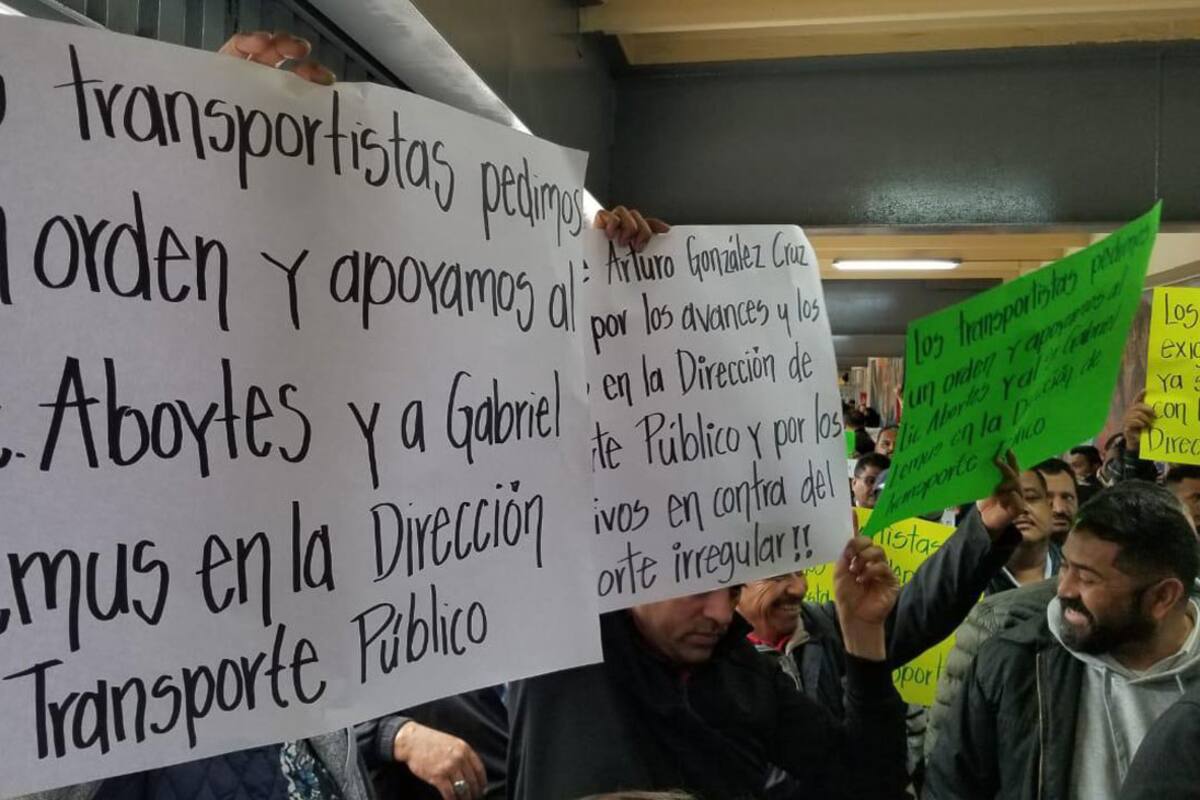 transportistas pedimos
orden y apoyamos al
. Aboytes y a Gabriel
emus en la Dirección
Transporte Público
Arturo González Cruz
por los avances y los
en la Dirección de
te Público y por los
ivos en contra del
orte irregular!!
Los transportistas pedimos
un orden y apoyamos al
lic Aboytes y al Gabriel
Lemus en la Dirección de
transporte Público
Los
exig
ya s
con l
Direc
istas
port